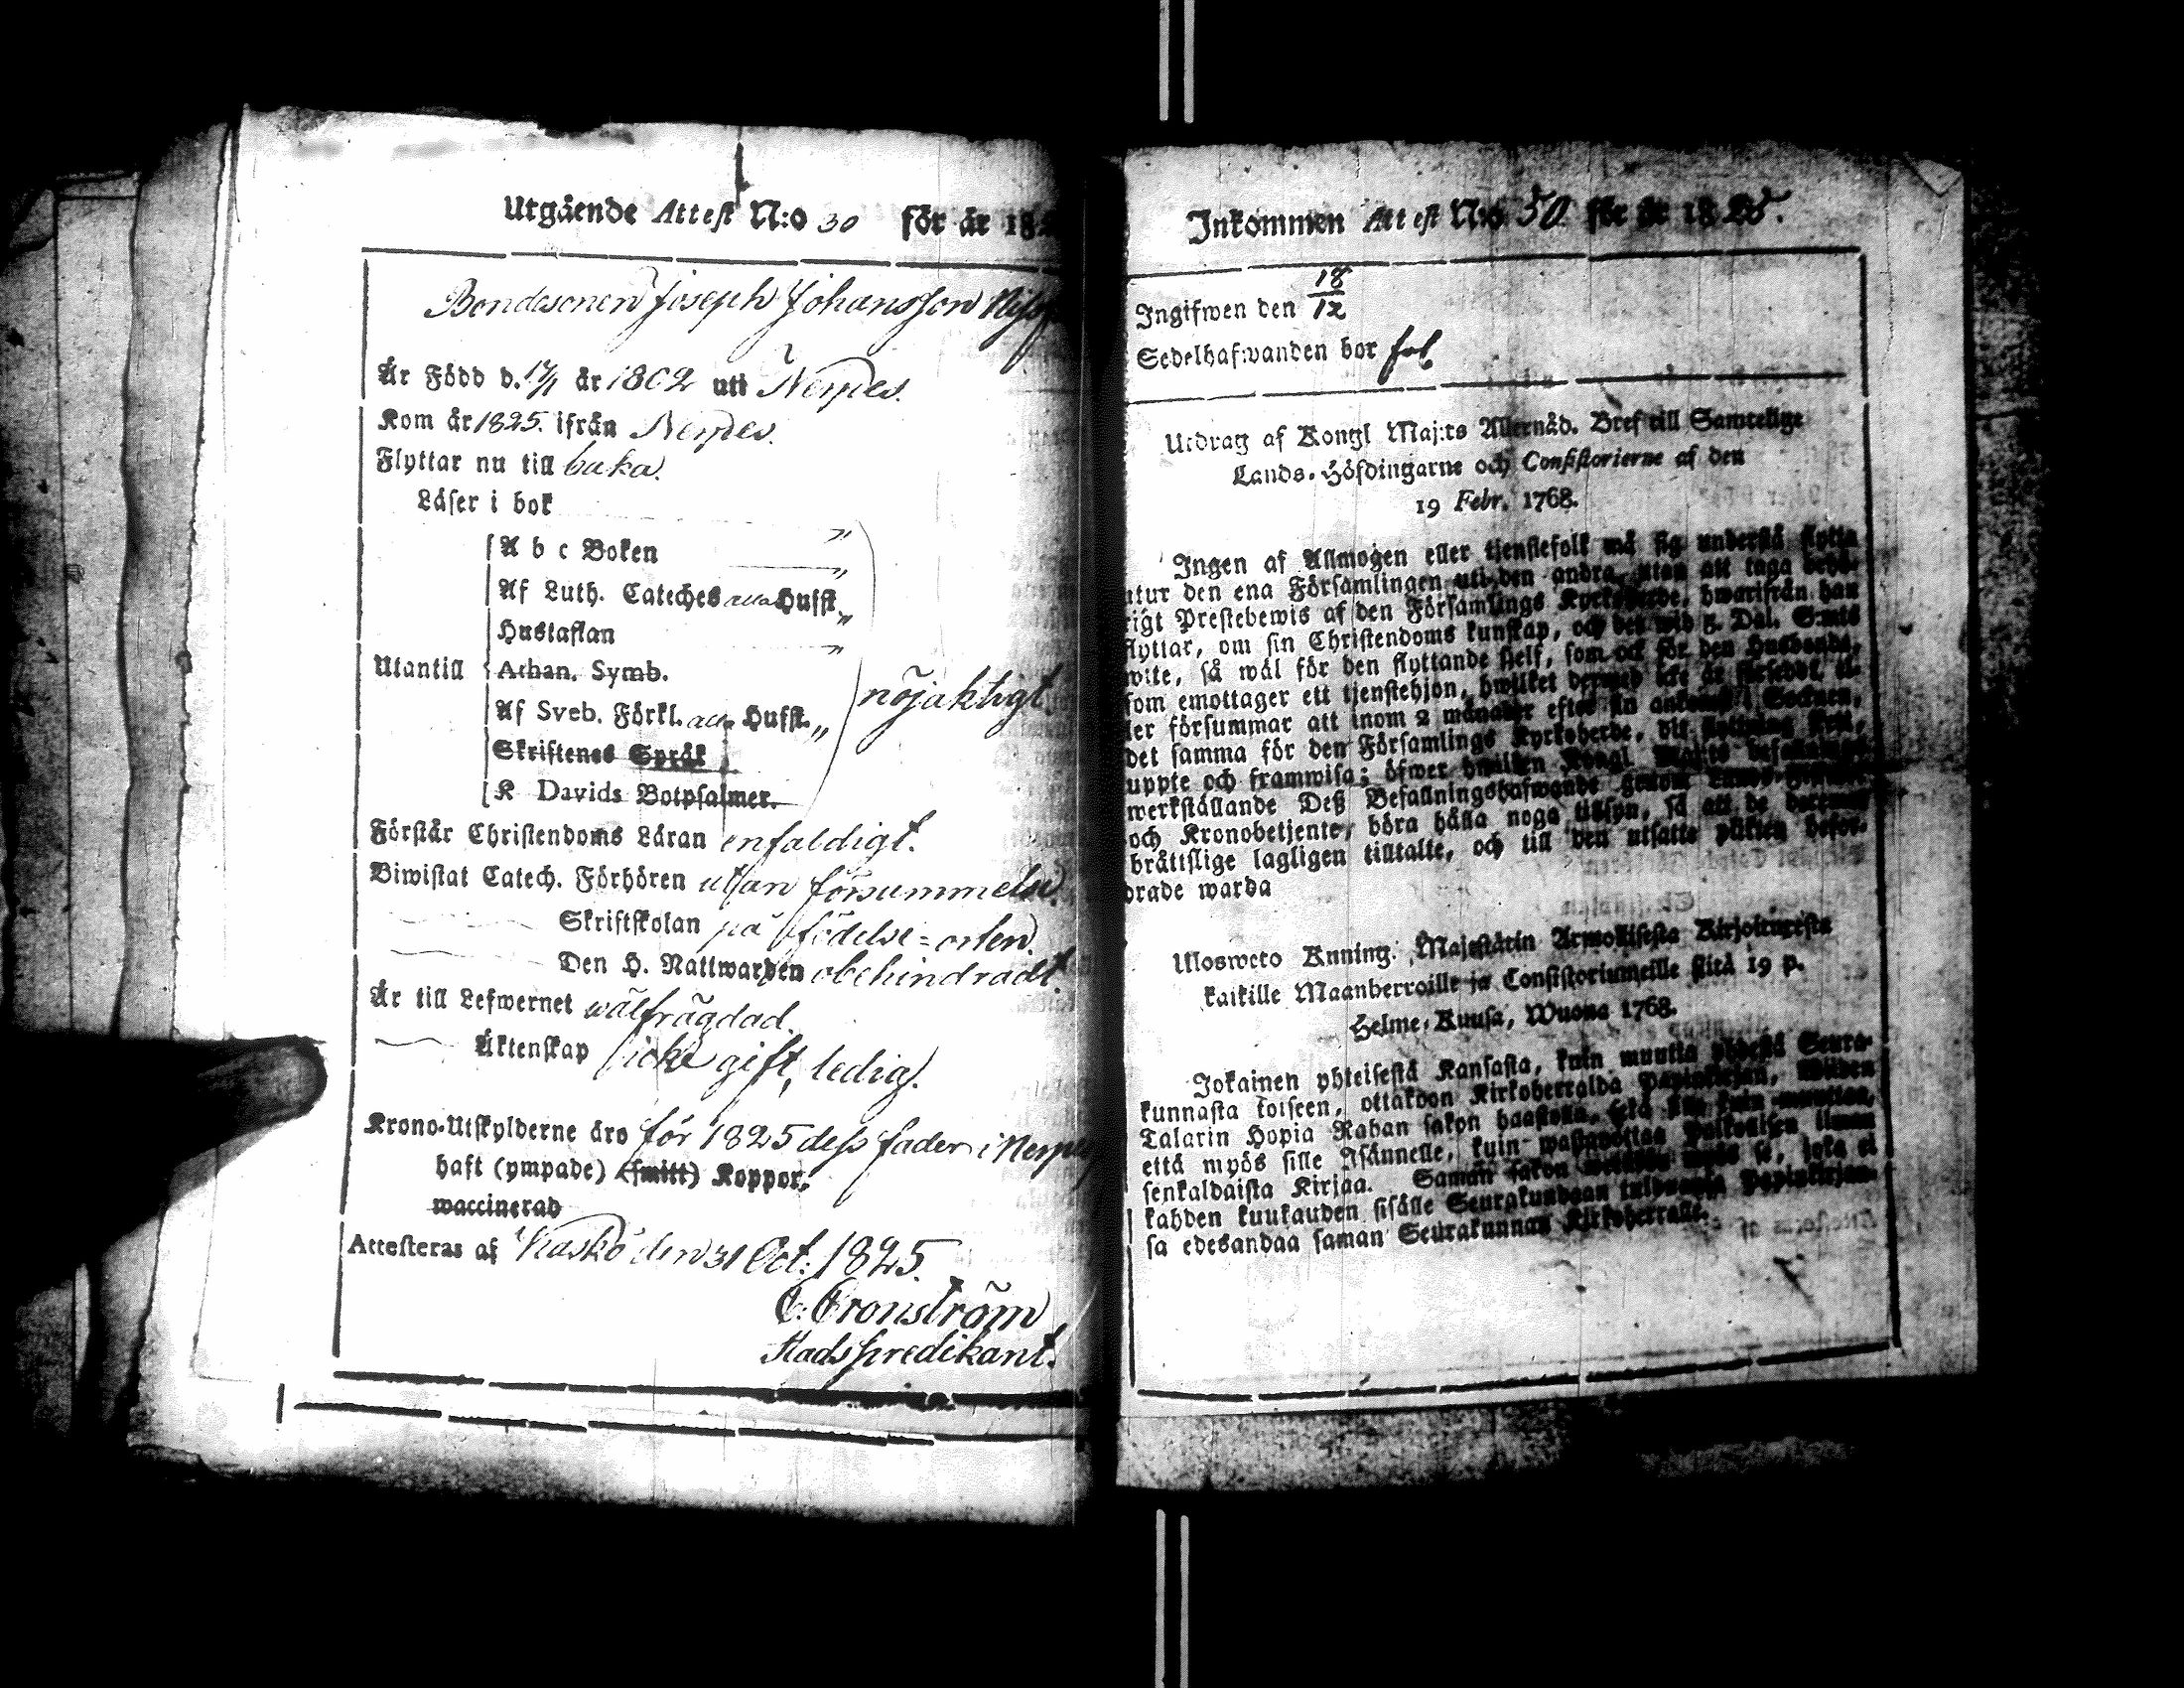 Utgående Attest N:o 30 för år 18
Bondesonen Joseph Johansson
Är Född d. 17/1 år 1802 uti Nerpes.
Kom år 1825. ifrån Nerpes.
Flyttar nu till baka.
Läser i bok „
Utantill
A b c Boken „
Af Luth. Cateches alla Hufst. „
Hustaflan „
Athan. Symb.
Af Sveb. Förkl. alla Hufst. „
Skriftenes Språk
K Davids Botpsalmer.
nöjaktigt
Förstår Christendoms Läran enfaldigt.
Biwistat Catech. Förhören utan försummelse.
Skriftskolan på födelse=orten.
Den H. Nattwarden obehindradt.
Är till Lefwernet wälfrägdad.
Äktenskap icke gift, ledig.
Krono-Utskylderne äro för 1825 dess fader i Nerpes
haft (ympade) (smitt) Koppor.
waccinerad
Attesteras af Kaskö den 31 Oct: 1825.
C: Cronström
Stads predikant.
Inkommen Attest N:o 50 för år 18
Ingifwen den 18/12
Sedelhafwanden bor
Utdrag af Kongl Maj:ts Allernåd. Bref till Samtelige
Lands-Höfdingarne och Consistorierne af den
19 Febr. 1768.
Ingen af Allmogen eller tjenstefolk må sig understå flytta
utur den ena Församlingen uti den andra, utan att taga behö-
rigt Prestebewis af den Församlings Kyrkoherde, hwarifrån han
flyttar, om sin Christendoms kunskap, och det wid Dal. S:mts
wite, så wäl för den flyttande sjelf, som ock för den Husbonde,
som emottager ett tjenstehjon, hwilket dermed icke är försedt, el-
ler försummar att inom 2 månader efter sin ankomst i Socknen,
det samma för den Församlings Kyrkoherde, dit flyttning skett,
uppte och framwisa; öfwer hwilken Kongl Maj:ts befallnings
werkställande Deß Befallningshafwande genom
och Kronobetjente, böra hålla noga tillsyn, så att de
brättslige lagligen tilltalte, och till den utsatte plikten befor-
drade warda
Ulosweto Kuning. Majestätin Armollisesta Kirjoituxesta
kaikille Maanherroille ja Consistoriumeille siitä 19 p.
Helme-Kuusa, Wuona 1768.
Jokainen yhteisestä Kansasta, kuin muutta yhdestä Seura-
kunnasta toiseen, ottakoon Kirkoherralda Papinkirjan,
Talarin Hopia Rahan sakon haastolla, sekä
että myös sille Isännelle, kuin wastanottaa Palkollisen ilman
senkaldaista Kirjaa. Saman sakon myös se, joka ei
kahden kuukauden sisälle Seurakundaan tulduansa Papinkirjan-
sa edesandaa saman Seurakunnan Kirkoherralle.